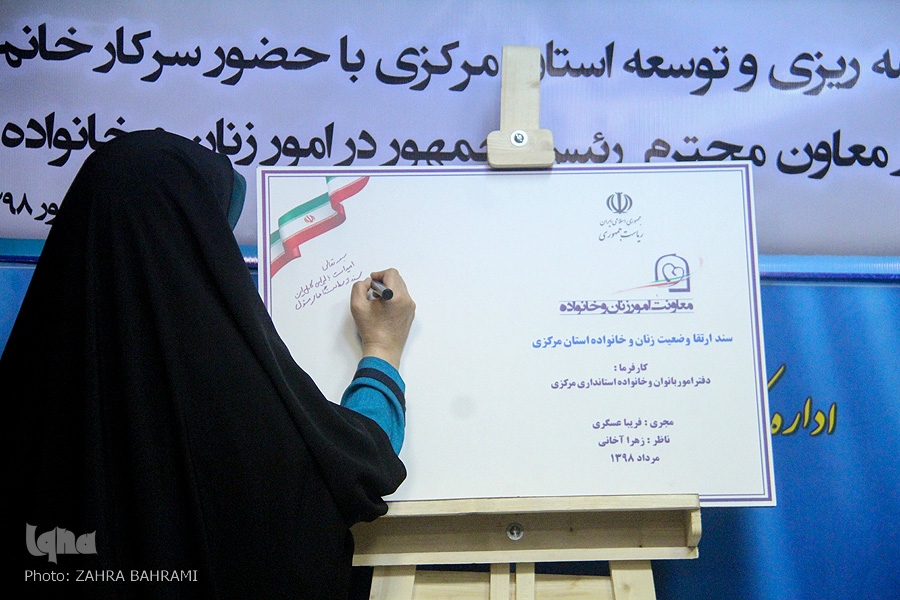 ـه ریزی و توسعه استان مرکزی با حضور سرکار خانم
معاون محترم رئیس جمهور در امور زنان و خانواده
ور ۱۳۹۸
جمهوری اسلامی ایران
ریاست جمهوری
معاونت امور زنان و خانواده
سند ارتقا وضعیت زنان و خانواده استان مرکزی
کارفرما :
دفتر امور بانوان و خانواده استانداری مرکزی
مجری : فریبا عسگری
ناظر : زهرا آخانی
مرداد ۱۳۹۸
اداره
iqna
Photo: ZAHRA BAHRAMI